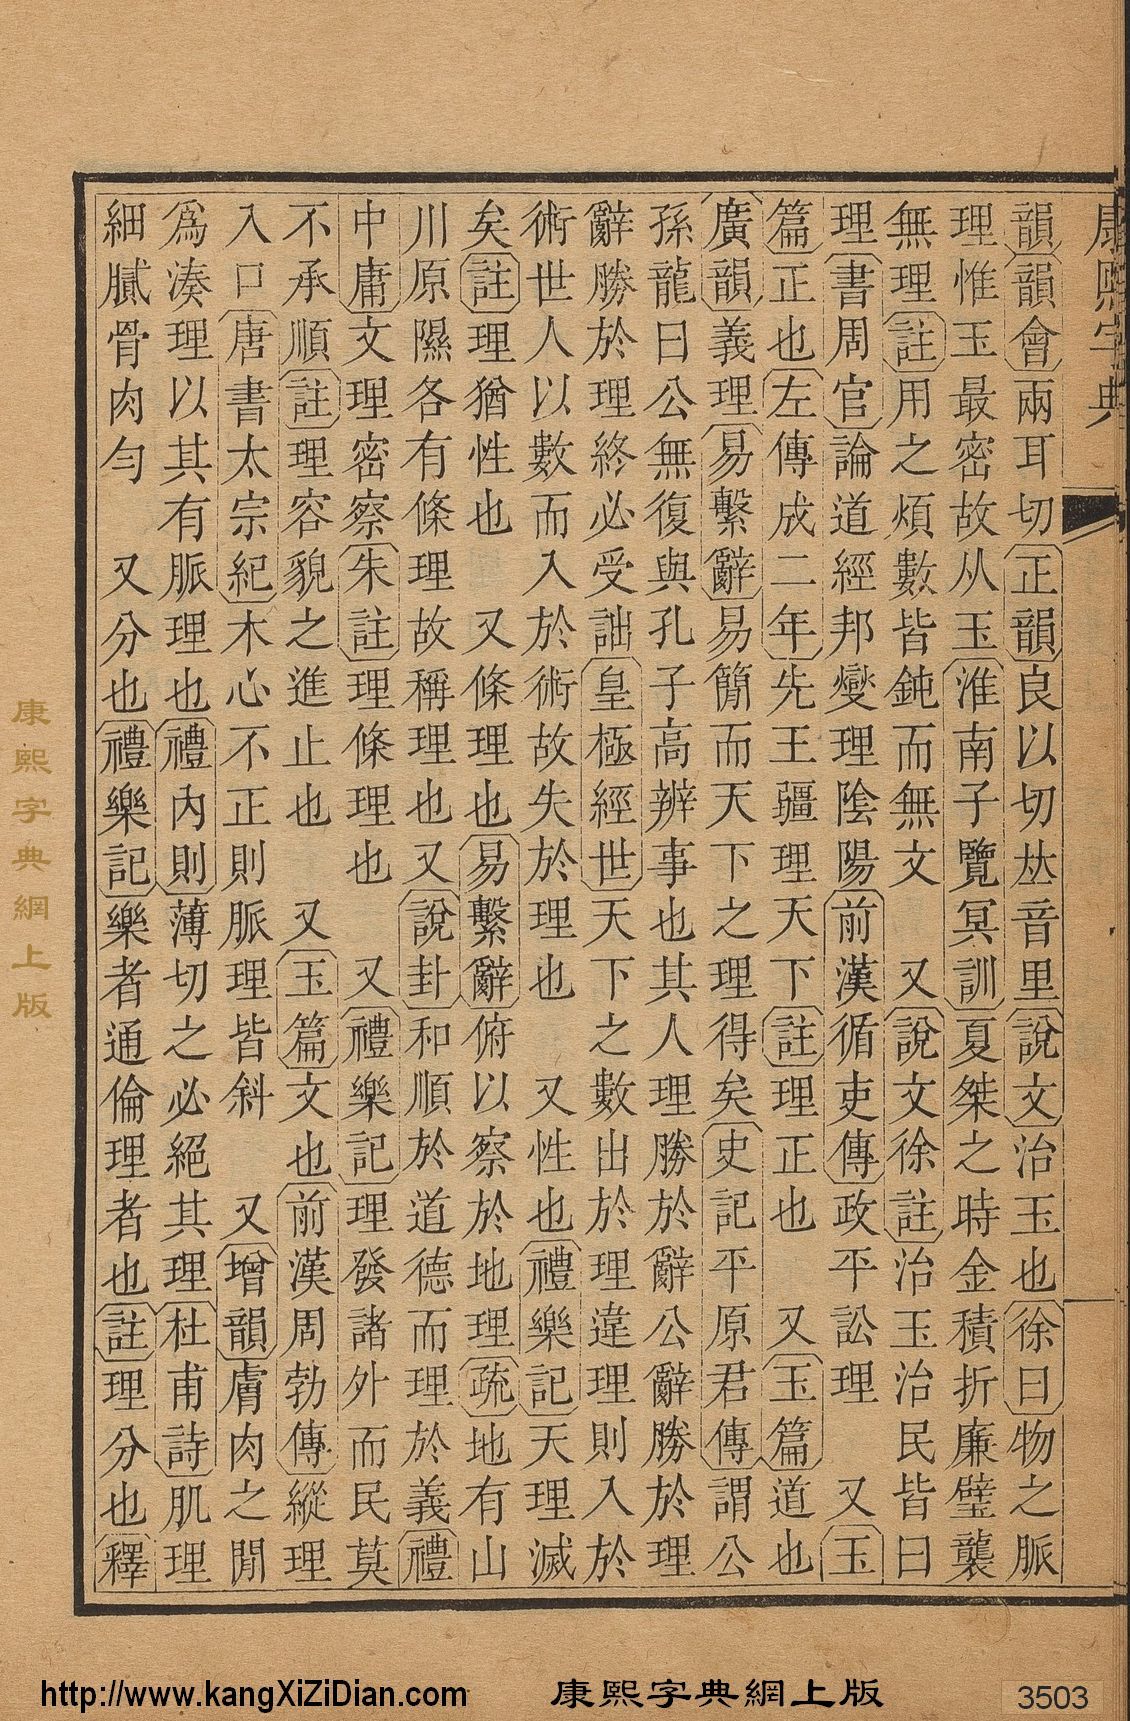 康熙字典
韻韻會兩耳切正韻良以切𠀤音里說文治玉也徐曰物之脈
理惟玉最密故从玉淮南子覽冥訓夏桀之時金積折廉璧襲
無理註用之煩數皆鈍而無文　又說文徐註治玉治民皆曰
理書周官論道經邦燮理陰陽前漢循吏傳政平訟理　又玉
篇正也左傳成二年先王疆理天下註理正也　又玉篇道也
廣韻義理易繫辭易簡而天下之理得矣史記平原君傳謂公
孫龍曰公無復與孔子高辨事也其人理勝於辭公辭勝於理
辭勝於理終必受詘皇極經世天下之數出於理違理則入於
術世人以數而入於術故失於理也　又性也禮樂記天理滅
矣註理猶性也　又條理也易繫辭俯以察於地理疏地有山
川原隰各有條理故稱理也又說卦和順於道德而理於義禮
中庸文理密察朱註理條理也　又禮樂記理發諸外而民莫
不承順註理容貌之進止也　又玉篇文也前漢周勃傳縱理
入口唐書太宗紀木心不正則脈理皆斜　又增韻膚肉之閒
爲湊理以其有脈理也禮內則薄切之必絕其理杜甫詩肌理
細膩骨肉勻　又分也禮樂記樂者通倫理者也註理分也釋
康熙字典網上版
http://www.kangXiZiDian.com 康熙字典網上版 3503